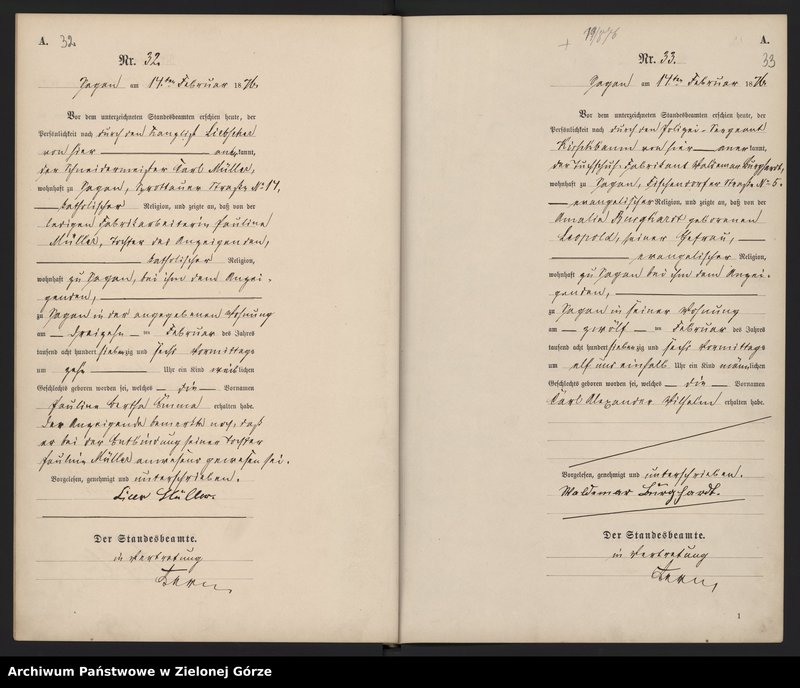 A. 32.
Nr. 32.
Sagan am 14ten Februar 1876
Vor dem unterzeichneten Standesbeamten erschien heute, der
Persönlichkeit nach durch den Kanzlist Liebscher
von hier anerkannt,
der Schneidermeister Carl Müller,
wohnhaft zu Sagan, Sprottauer Straße No 14,
katholischer Religion, und zeigte an, daß von der
ledigen Fabrikarbeiterin Pauline
Müller, Tochter des Anzeigenden,
katholischer Religion,
wohnhaft zu Sagan, bei ihm dem Anzei-
genden,
zu Sagan in der angegebenen Wohnung
am dreizehn ten Februar des Jahres
tausend acht hundert siebenzig und sechs Vormittags
um zehn Uhr ein Kind weiblichen
Geschlechts geboren worden sei, welches die Vornamen
Pauline Bertha Emma erhalten habe.
Der Anzeigende bemerkte noch, daß
er bei der Entbindung seiner Tochter
Pauline Müller anwesend gewesen sei.
Vorgelesen, genehmigt und unterschrieben.
Müller.
Der Standesbeamte.
in Vertretung
19/876
A.
33
Nr. 33.
Sagan am 14ten Februar 1876
Vor dem unterzeichneten Standesbeamten erschien heute, der
Persönlichkeit nach durch den Polizei-Sergeant
Kirschbaum von hier anerkannt,
der Tuchschuh-Fabrikant Waldemar Burghardt,
wohnhaft zu Sagan, Fischendorfer Straße No 5.
evangelischer Religion, und zeigte an, daß von der
Amalie Burghardt geborenen
Leopold, seiner Ehefrau,
evangelischer Religion,
wohnhaft zu Sagan bei ihm dem Anzei-
genden,
zu Sagan in seiner Wohnung
am zwölf ten Februar des Jahres
tausend acht hundert siebenzig und sechs Vormittags
um elf und einhalb Uhr ein Kind männlichen
Geschlechts geboren worden sei, welches die Vornamen
Carl Alexander Wilhelm erhalten habe.
Vorgelesen, genehmigt und unterschrieben.
Waldemar Burghardt.
Der Standesbeamte.
in Vertretung
1
Archiwum Państwowe w Zielonej Górze